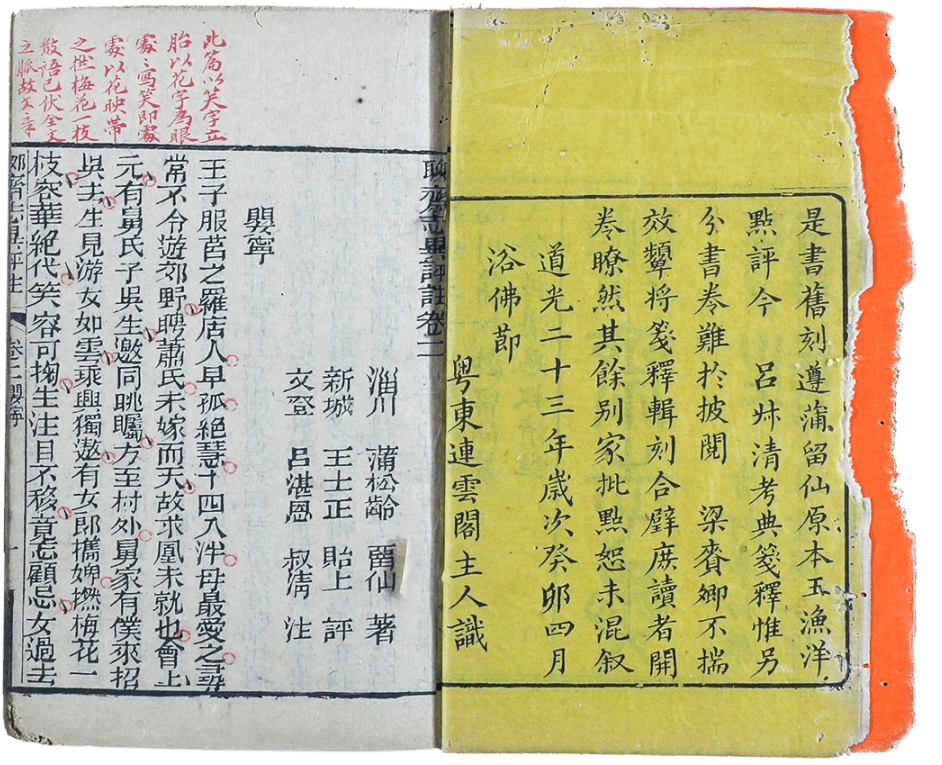 是書舊刻遵蒲留仙原本王漁洋
點評今 呂叔清考典箋釋惟另
分書卷難於披閱 梁賚卿不揣
效顰將箋釋輯刻合璧庶讀者開
卷瞭然其餘別家批點恕未混敘
道光二十三年歲次癸卯四月
浴佛節
粤東連雲閣主人識
聊齋志異評註卷二
淄川 蒲松齡 留仙 著
新城 王士正 貽上 評
文登 呂湛恩 叔清 注
嬰寧
王子服莒之羅店人早孤絕慧十四入泮母最愛之尋
常不令遊郊野聘蕭氏未嫁而夭故求凰未就也會上
元有舅氏子吳生邀同眺矚方至村外舅家有僕來招
吳去生見游女如雲乘興獨遨有女郎攜婢撚梅花一
枝容華絕代笑容可掬生注目不移竟忘顧忌女過去
聊齋志異評註 卷二 嬰寧 一
此篇以笑字立
胎以花字為眼
處處寫笑即處
處以花映帶
之撚梅花一枝
數語已伏全文
之脈故文章